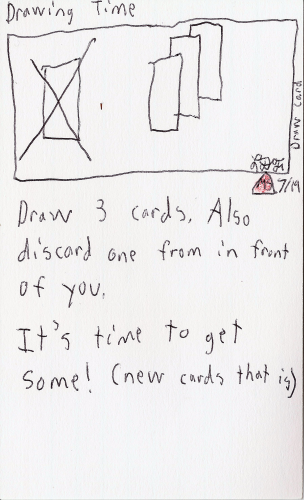 Drawing Time
Draw Card
7/19
Draw 3 cards. Also
discard one from in front
of you.
It's time to get
some! (new cards that is)